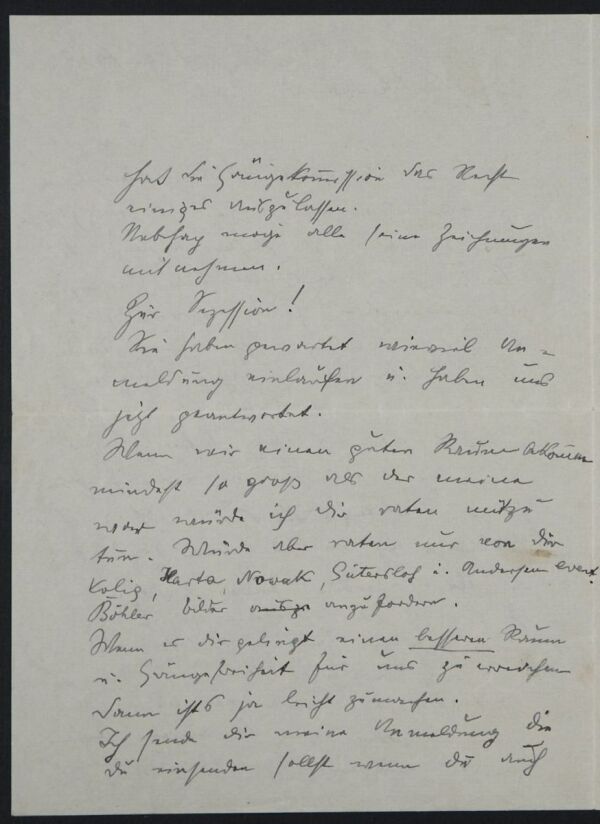 hat die Hängekommission das Recht
einiges auszulassen.
Nebehay möge alle seine Zeichnungen
mitnehmen.
Zur Sezession!
Sie haben gewartet wieviel An=
meldung einlaufen u. haben uns
jetzt geantwortet.
Wenn wir einen guten Raum bekommen
mindest so groß als der meine
war würde ich dir raten mitzu
tun. Würde aber raten nur von dir
Kolig, Harta, Nowak, Gütersloh u. Andersen event.
Böhler bilder anzufordern.
Wenn es dir gelingt einen besseren Raum
u. Hängefreiheit für uns zu erreichen
dann ists ja leicht zumachen.
Ich sende dir meine Anmeldung die
du einsenden sollst wenn du auch